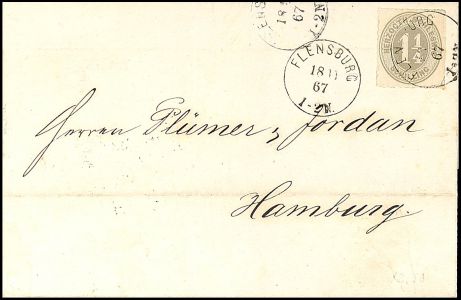 FLENSBURG
18 11
67
1-2N.
ENS
18
67
1-2N.
HERZOGTH.
1¼
SCHILLING
BURG
67
Herren Plümer & Jordan
Hamburg.